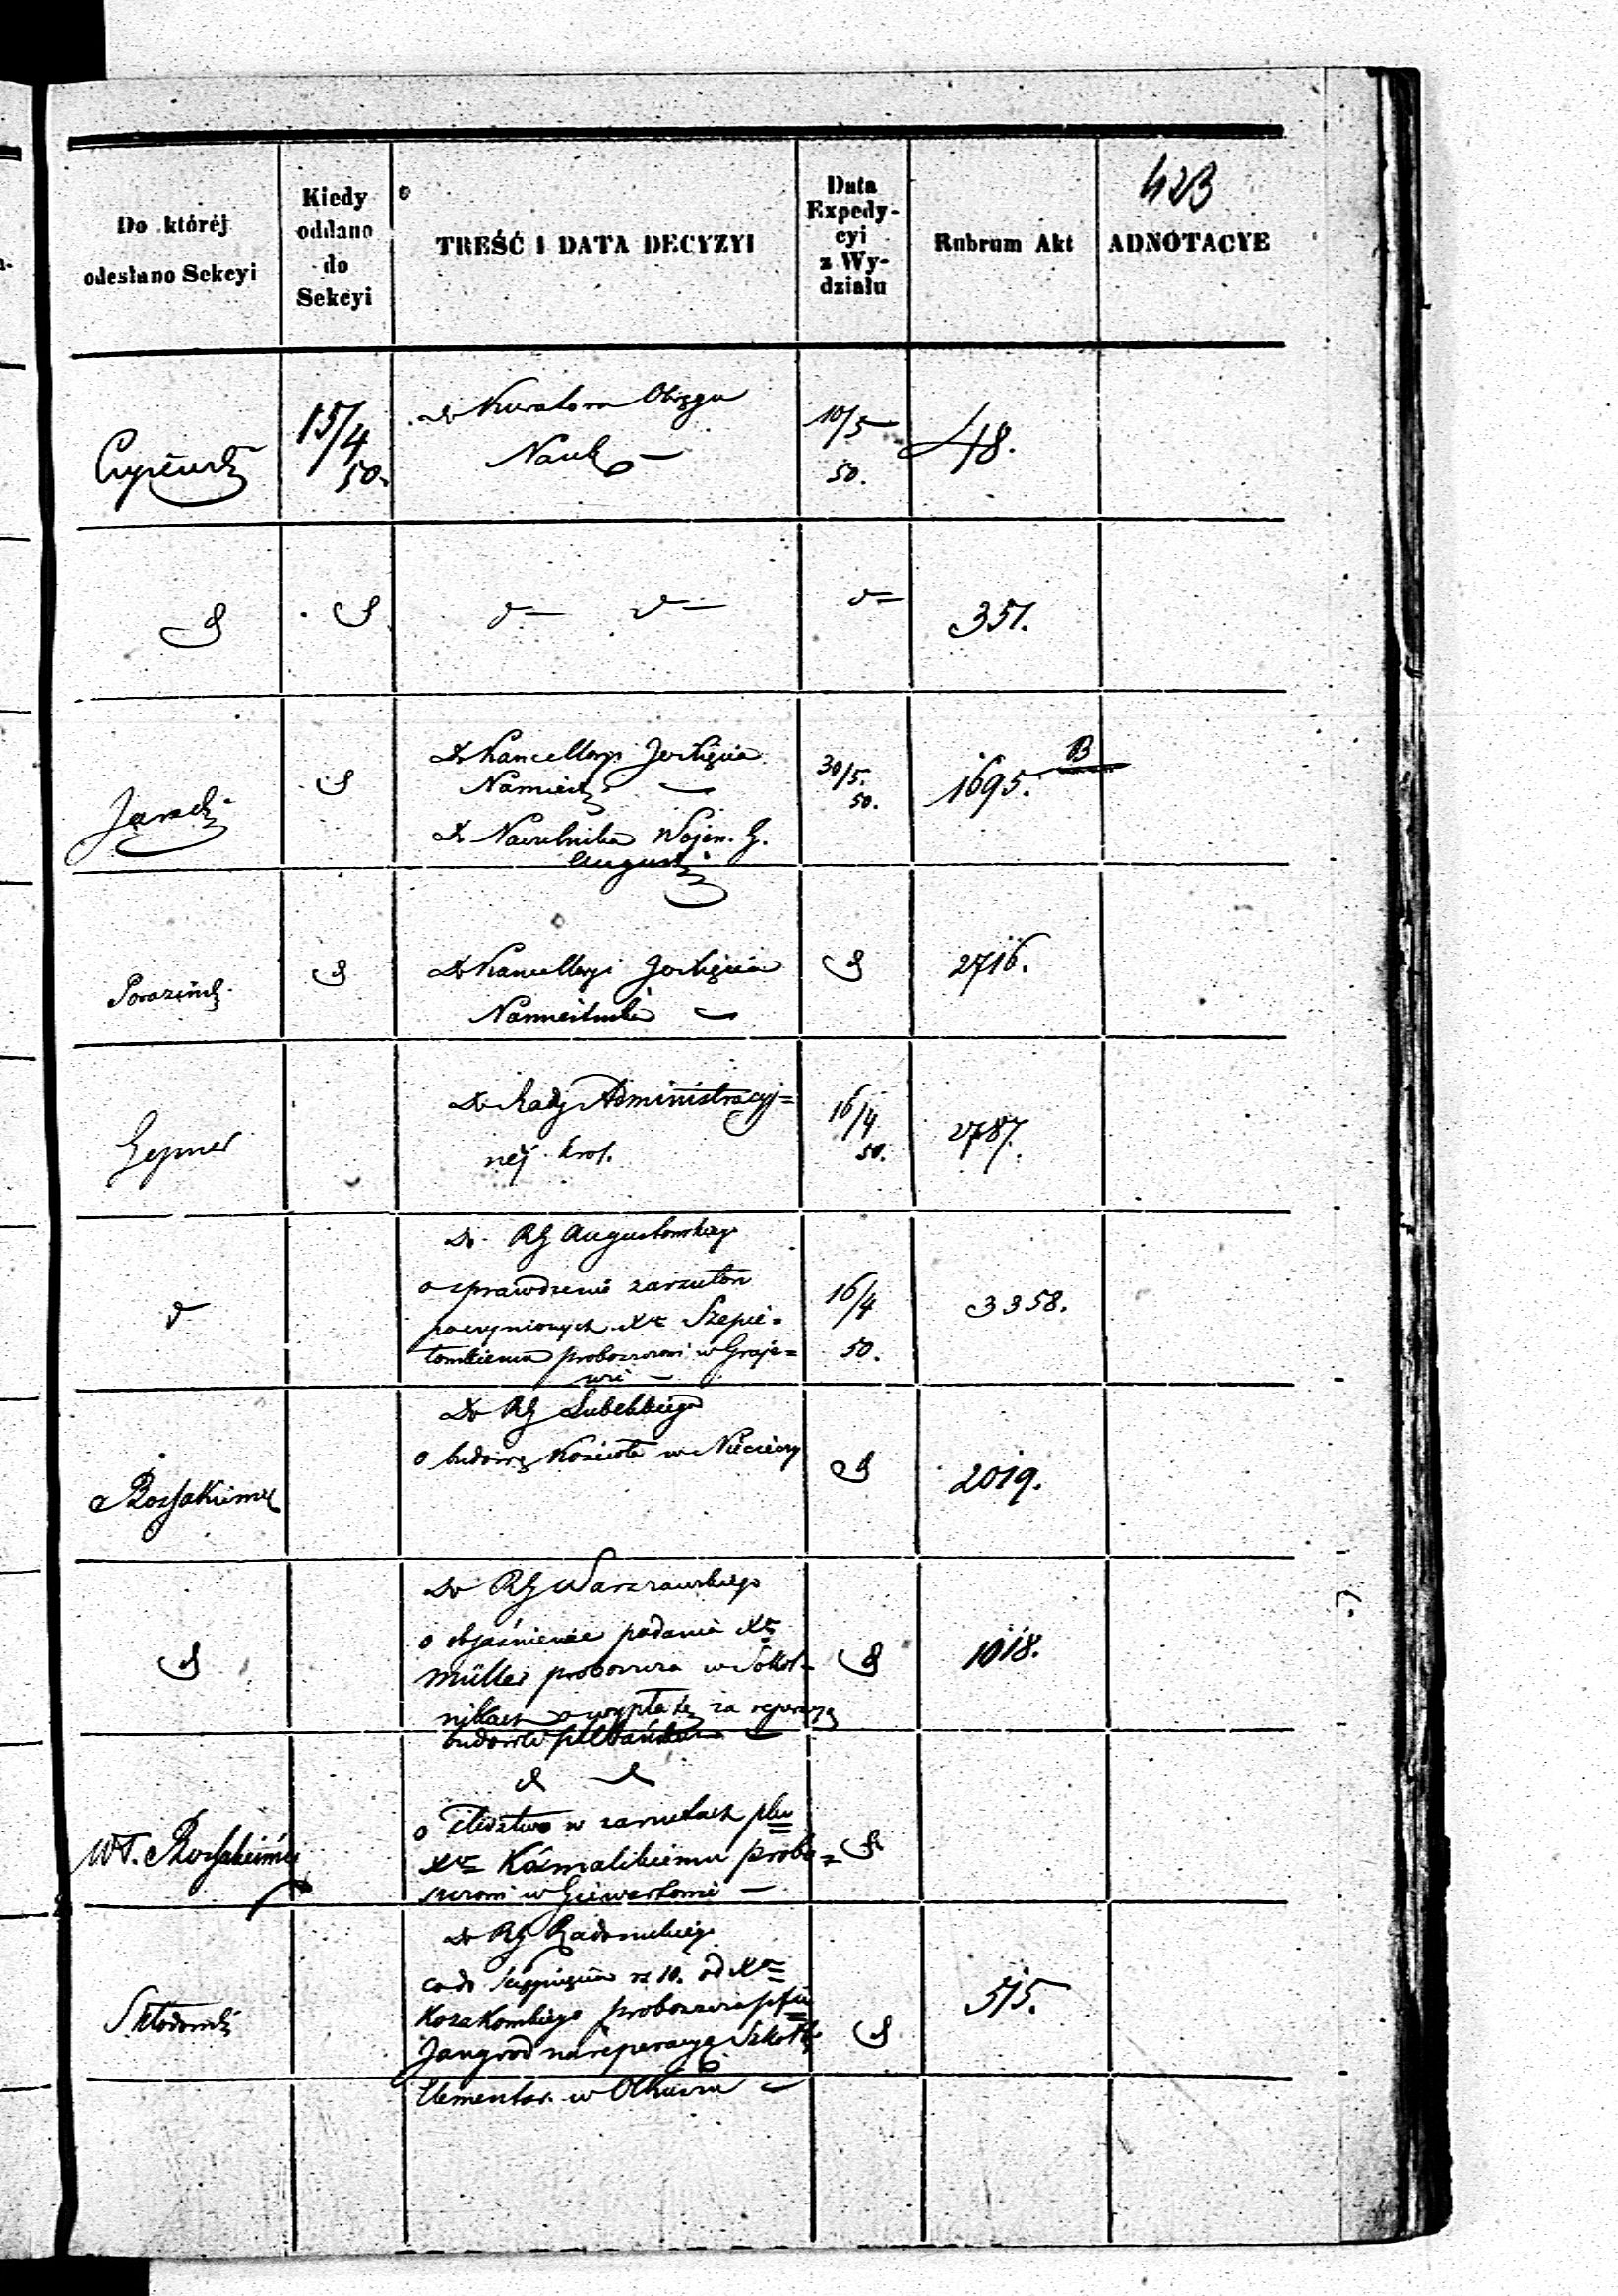 423
Do któréj
odesłano Sekcyi
Kiedy
oddano
do
Sekcyi
TREŚĆ I DATA DECYZYI
Data
Expedy-
cyi
z Wy-
działu
Rubrum Akt
ADNOTACYE
15/4
50.
do Kuratora Okręgu
Nauk
10/5
50.
48.
d
d
d d
d
351.
d
Do Kancellaryi Jo Xięcia
Namiest
Do Naczelnika Wojen. G.
August
30/5.
50.
1695. B
d
Do Kancellaryi Jo Xięcia
Namiestnika
d
2716.
Do Rady Administracyj=
nej Król.
16/4
50.
2787.
d
Do RG Augustowskiego
o sprawdzenie zarzutów
poczynionych Xu Szepie=
towskiemu proboszczowi w Graje=
wie
16/4
50.
3358.
Do RG Lubelskiego
o budowę Kościoła w Nieciec
d
2019.
d
Do RG Warszawskiego
o objaśnienie podania Xa
Müller proboszcza w Sokol-
nikach o wypłatę za reperacyą
budowli plebańskich
d
1018.
d d
o śledztwo w zarzutach
Xu Koźmalskiemu probo=
szczowi w Giewartowie
d
Do RG Radomskiego
co do ściągnięcia rs 10. od Xa
Kozakowskiego proboszcza
Jangrod na reperacyą Szkoły
Elementar. w Olkuszu
d
515.